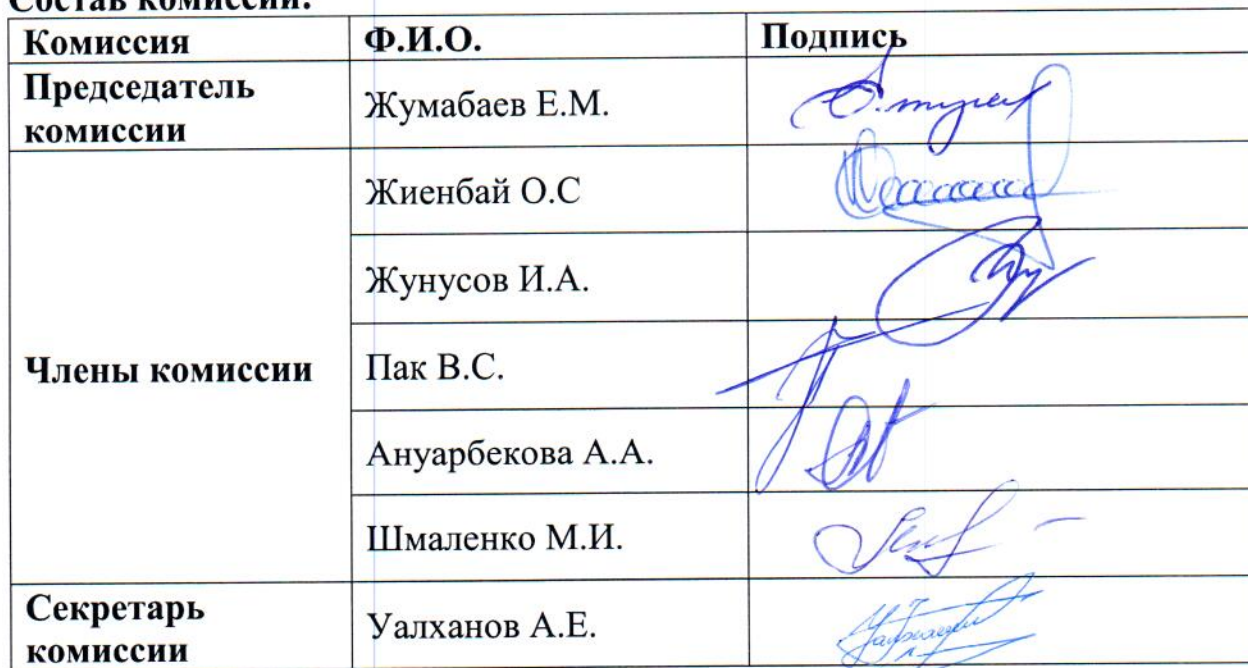 Состав комиссии:
Комиссия Ф.И.О. Подпись
Председатель
комиссии
Жумабаев Е.М.
Жиенбай О.С
Жунусов И.А.
Члены комиссии
Пак В.С.
Ануарбекова А.А.
Шмаленко М.И.
Секретарь
комиссии
Уалханов А.Е.